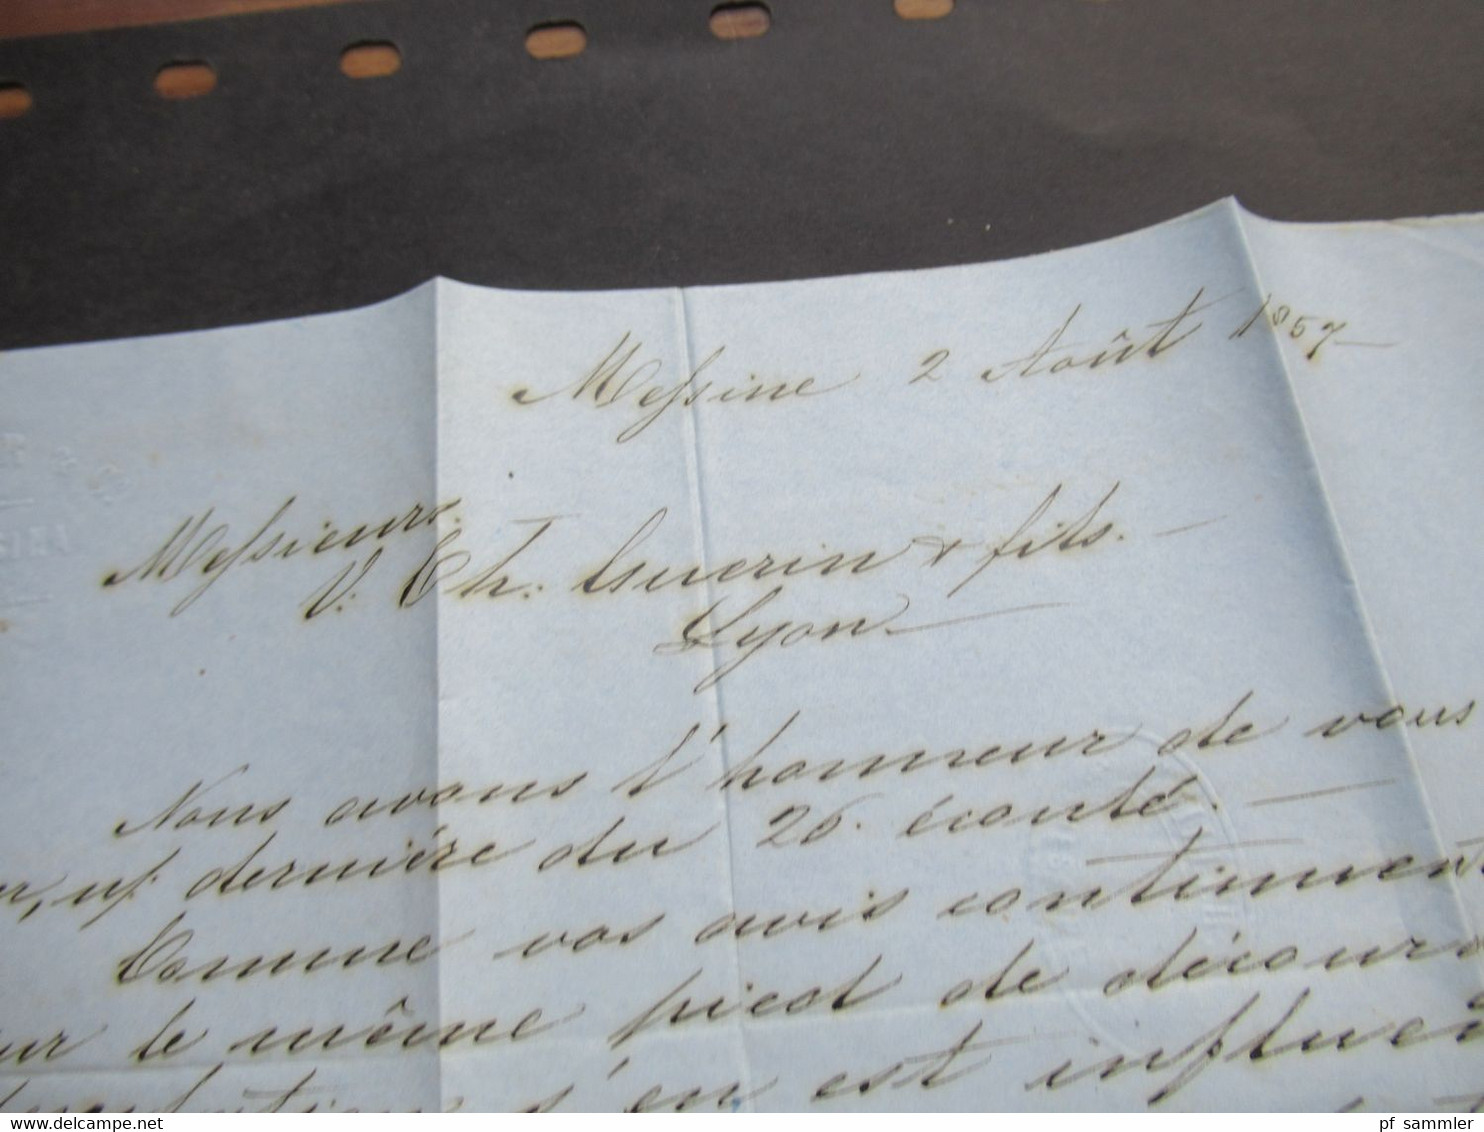 Messine 2 Août 1857
Messieurs
V. Ch: Guerin & fils.
Lyon
Nous avons l'honneur de vous
dernière du 26 écoulé.
Comme vos avis continuent
le même pied de
s'en est
pf sammler